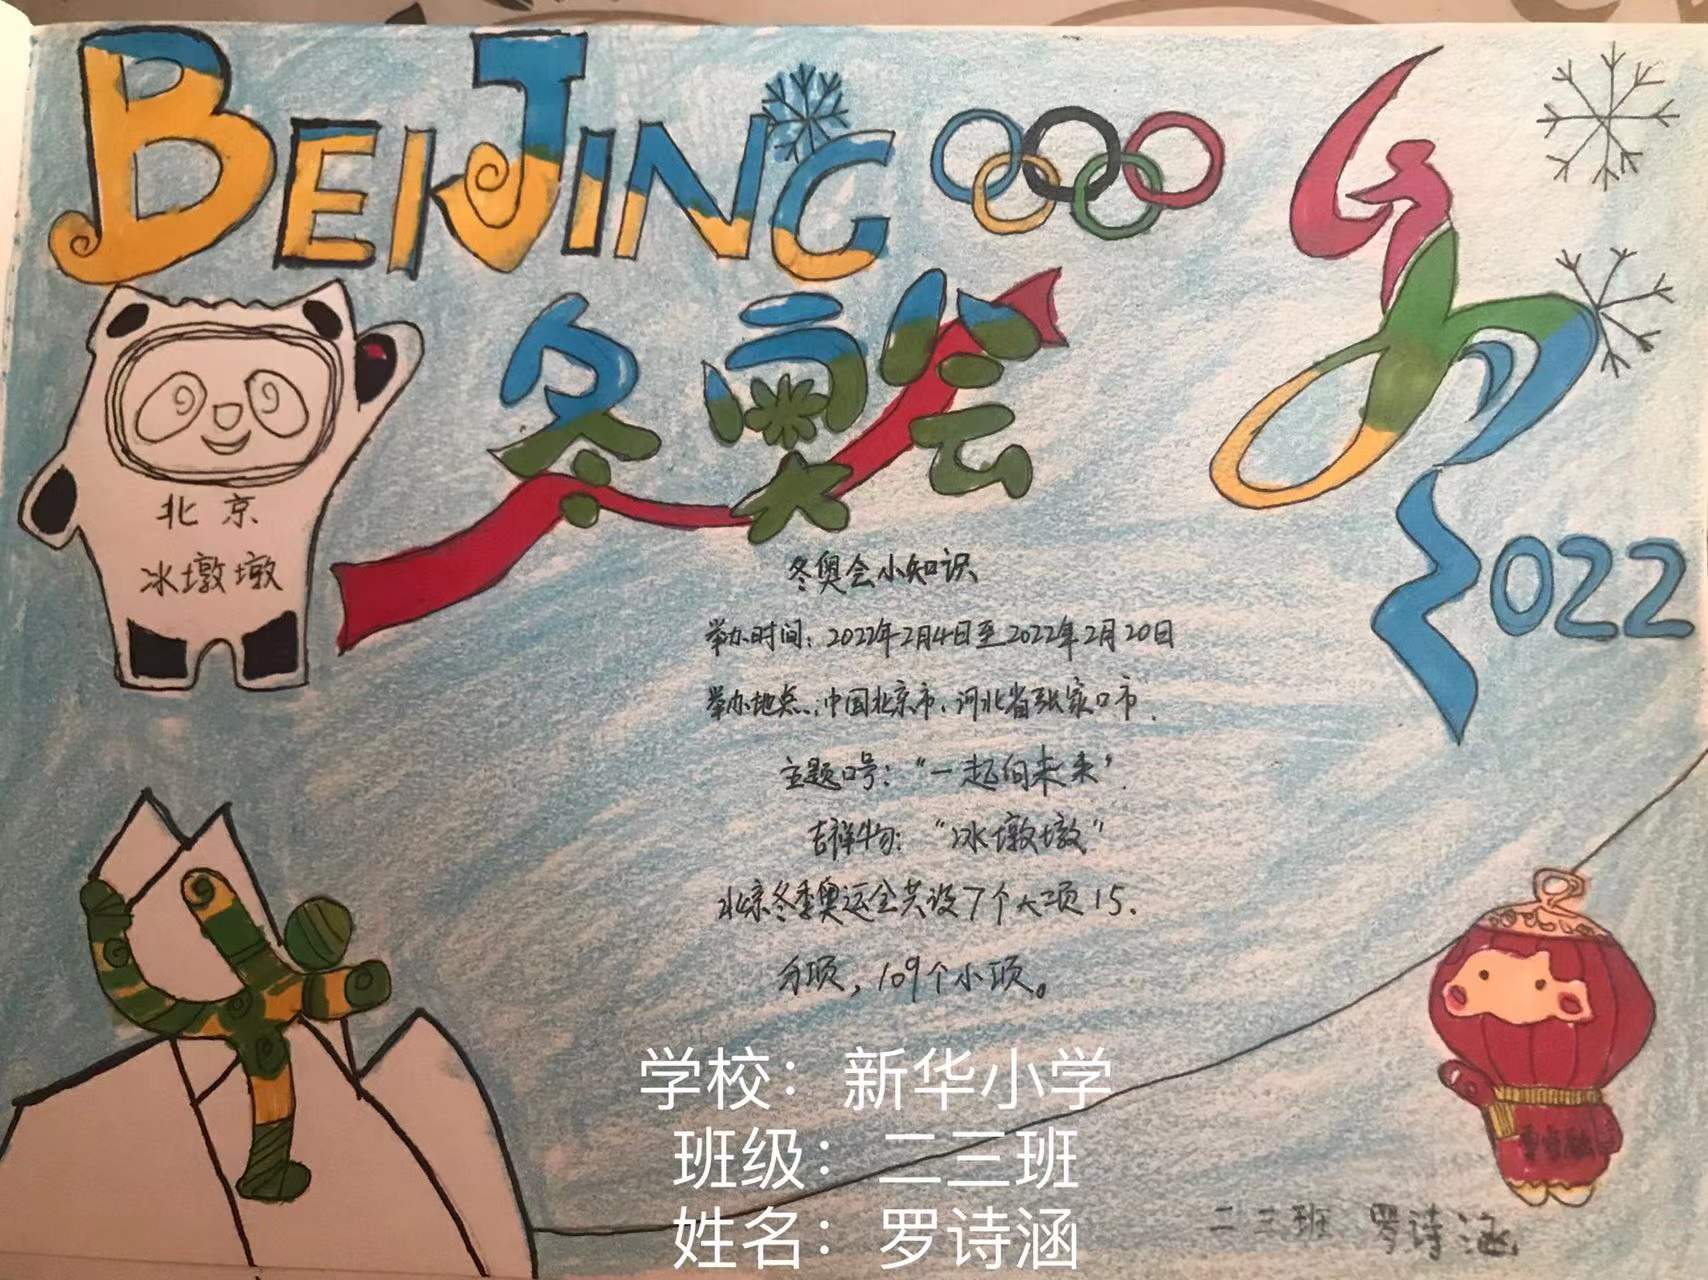 BEIJING
冬奥会
2022
北京
冰墩墩
冬奥会小知识
举办时间：2022年2月4日至2022年2月20日
举办地点：中国北京市、河北省张家口市.
主题口号：“一起向未来”.
吉祥物：“冰墩墩”
北京冬季奥运会共设7个大项15.
分项，109个小项。
学校：新华小学
班级：二三班
姓名：罗诗涵
二三班 罗诗涵